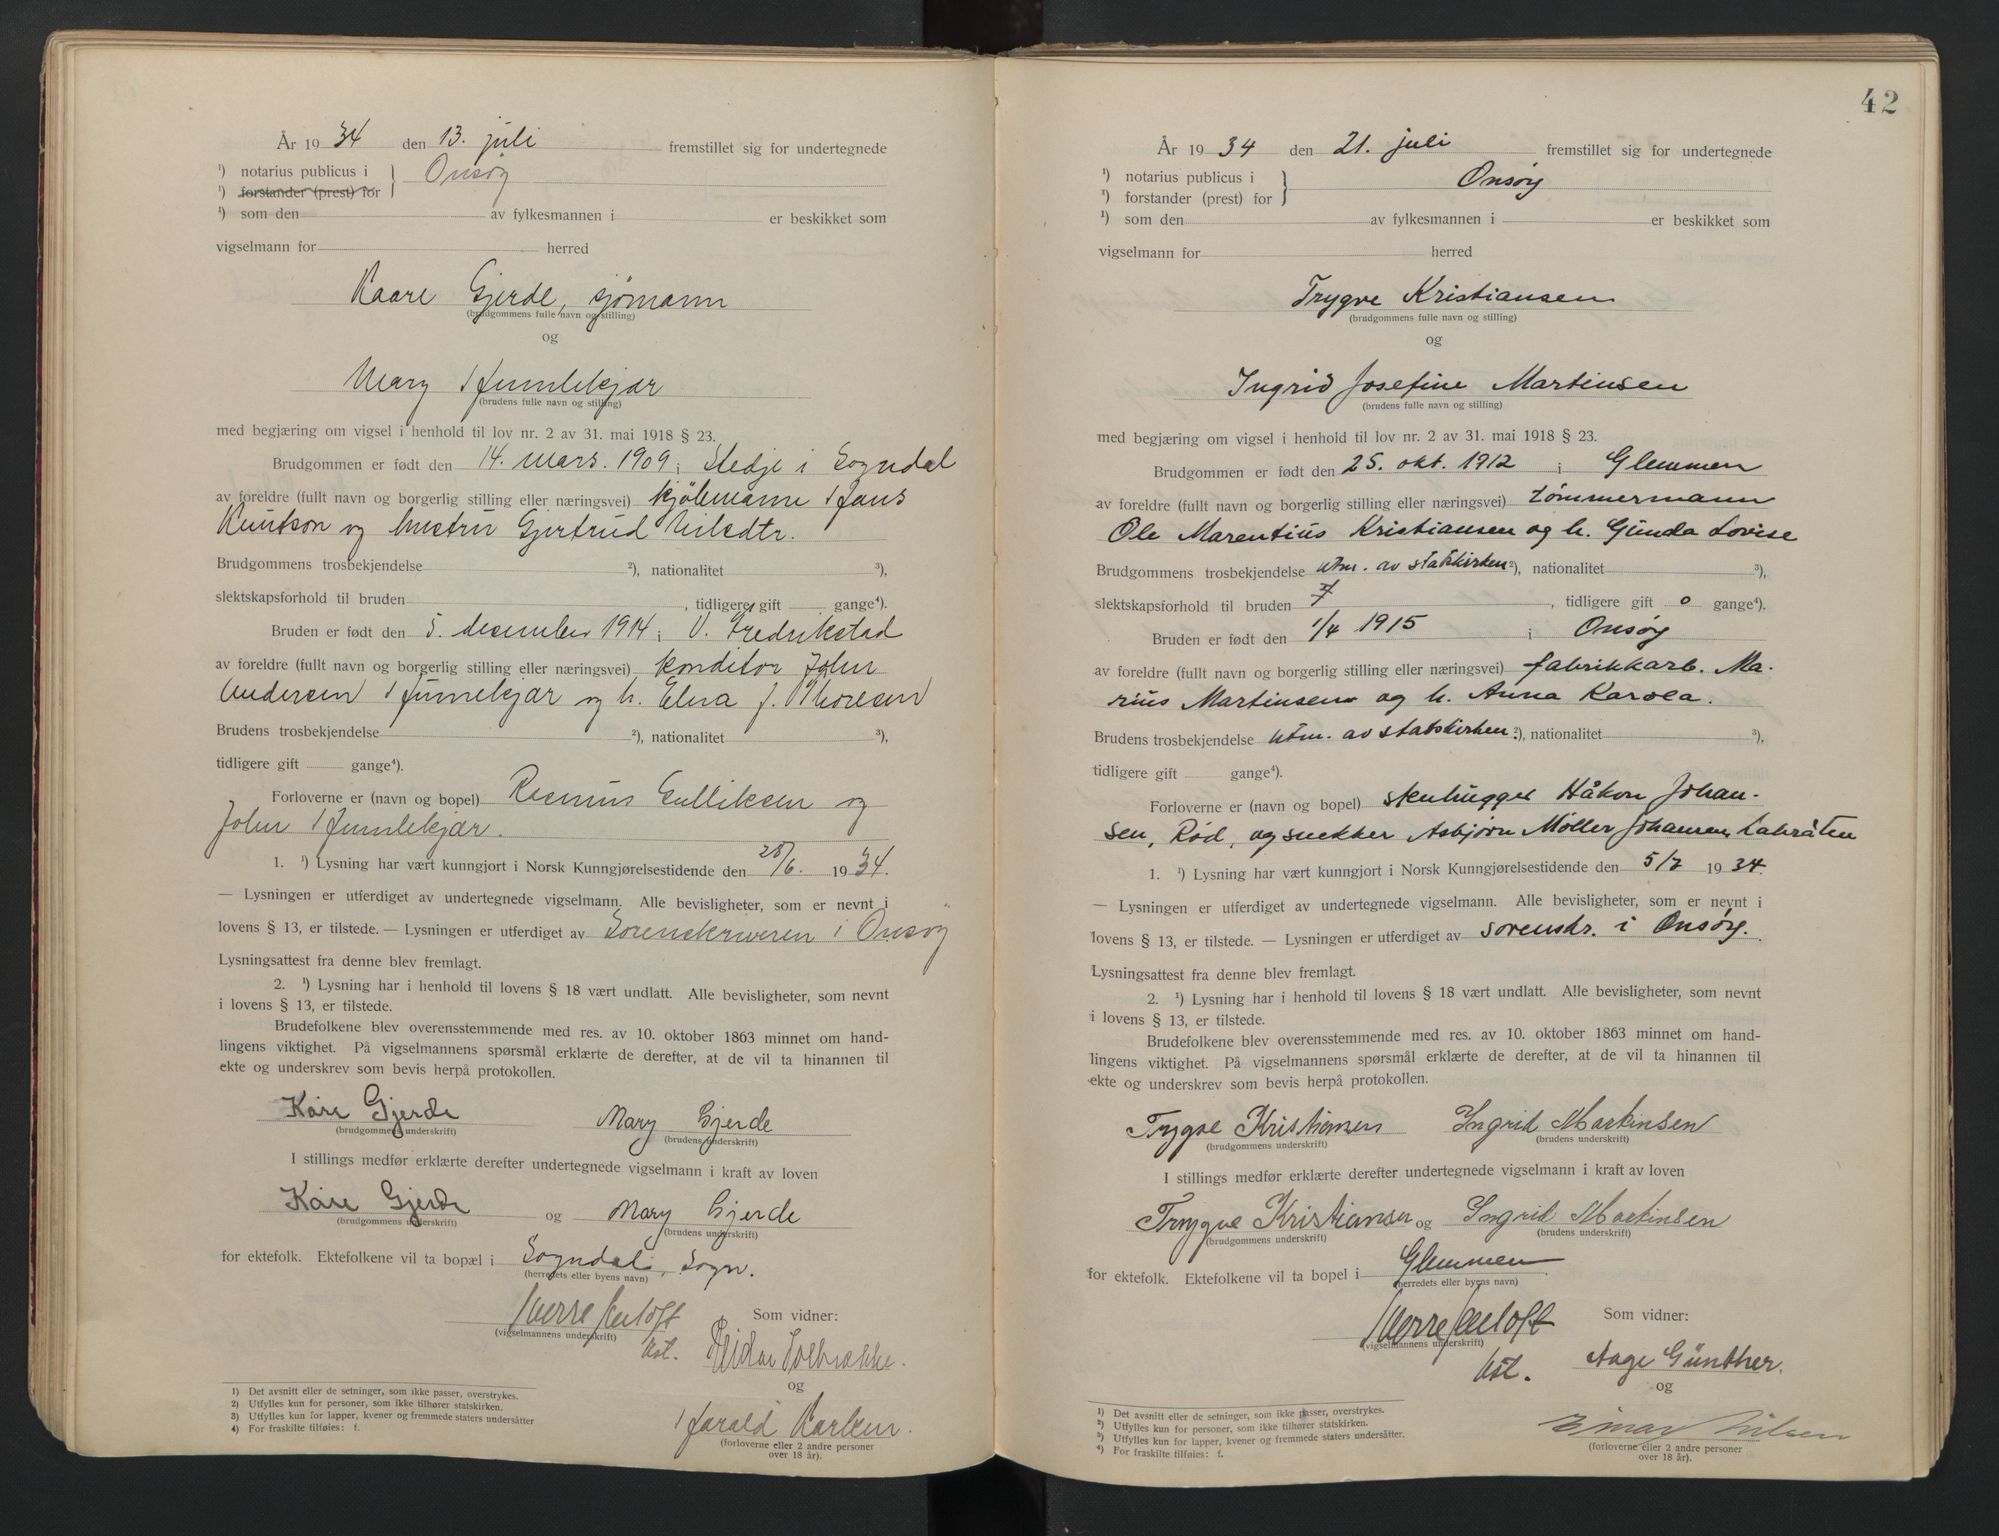 År 1934 den 13. juli fremstillet sig for undertegnede
¹) notarius publicus i } Onsøy
¹) forstander (prest) for
¹) som den av fylkesmannen i er beskikket som
vigselmann for herred
Kaare Gjerde, sjømann
(brudgommens fulle navn og stilling)
og
Mary Humlekjær
(brudens fulle navn og stilling)
med begjæring om vigsel i henhold til lov nr. 2 av 31. mai 1918 § 23.
Brudgommen er født den 14. mars. 1909 i Stedje i Sogndal
av foreldre (fullt navn og borgerlig stilling eller næringsvei) kjølemann Hans
Knutson og hustru Gjertrud Nilsdtr.
Brudgommens trosbekjendelse ²), nationalitet ³),
slektskapsforhold til bruden , tidligere gift gange⁴).
Bruden er født den 5. desember 1914 i V. Fredrikstad
av foreldre (fullt navn og borgerlig stilling eller næringsvei) konditor John
Andersen Humlekjær og h. Elna f. Thoresen
Brudens trosbekjendelse ²), nationalitet ³),
tidligere gift gange⁴).
Forloverne er (navn og bopel) Rasmus Gulliksen og
John Humlekjær.
1. ¹) Lysning har vært kunngjort i Norsk Kunngjørelsestidende den 28/6. 1934.
— Lysningen er utferdiget av undertegnede vigselmann. Alle bevisligheter, som er nevnt i
lovens § 13, er tilstede. — Lysningen er utferdiget av Sorenskriveren i Onsøy
Lysningsattest fra denne blev fremlagt.
2. ¹) Lysning har i henhold til lovens § 18 vært undlatt. Alle bevisligheter, som nevnt
i lovens § 13, er tilstede.
Brudefolkene blev overensstemmende med res. av 10. oktober 1863 minnet om hand-
lingens viktighet. På vigselmannens spørsmål erklærte de derefter, at de vil ta hinannen til
ekte og underskrev som bevis herpå protokollen.
Kåre Gjerde Mary Gjerde
(brudgommens underskrift) (brudens underskrift)
I stillings medfør erklærte derefter undertegnede vigselmann i kraft av loven
Kåre Gjerde og Mary Gjerde
(brudgommens underskrift) (brudens underskrift)
for ektefolk. Ektefolkene vil ta bopæl i Sogndal i Sogn.
(herredets eller byens navn)
Sverre Som vidner:
(vigselmannens underskrift)
Kst. Reidar Solbrække.
og
Harald Karlsen.
(forloverne eller 2 andre personer
over 18 år).
1) Det avsnitt eller de setninger, som ikke passer, overstrykes.
2) Utfylles kun for personer, som ikke tilhører statskirken.
3) Utfylles kun for lapper, kvener og fremmede staters undersåtter
4) For fraskilte tilføies: f.
42
År 1934 den 21. juli fremstillet sig for undertegnede
¹) notarius publicus i } Onsøy
¹) forstander (prest) for
¹) som den av fylkesmannen i er beskikket som
vigselmann for herred
Trygve Kristiansen
(brudgommens fulle navn og stilling)
og
Ingrid Josefine Martinsen
(brudens fulle navn og stilling)
med begjæring om vigsel i henhold til lov nr. 2 av 31. mai 1918 § 23.
Brudgommen er født den 25. okt. 1912 i Glemmen
av foreldre (fullt navn og borgerlig stilling eller næringsvei) tømmermann
Ole Marentius Kristiansen og h. Gunda Lovise
Brudgommens trosbekjendelse utm. av statskirken ²), nationalitet ³),
slektskapsforhold til bruden , tidligere gift 0 gange⁴).
Bruden er født den 1/4 1915 i Onsøy
av foreldre (fullt navn og borgerlig stilling eller næringsvei) fabrikkarb. Ma-
rius Martinsen og h. Anna Karola.
Brudens trosbekjendelse utm. av statskirken. ²), nationalitet ³),
tidligere gift gange⁴).
Forloverne er (navn og bopel) stenhugger Håkon Johan-
sen, Rød, og snekker Asbjørn Møller Johansen, Labråten
1. ¹) Lysning har vært kunngjort i Norsk Kunngjørelsestidende den 5/7 1934.
— Lysningen er utferdiget av undertegnede vigselmann. Alle bevisligheter, som er nevnt i
lovens § 13, er tilstede. — Lysningen er utferdiget av sorenskr. i Onsøy.
Lysningsattest fra denne blev fremlagt.
2. ¹) Lysning har i henhold til lovens § 18 vært undlatt. Alle bevisligheter, som nevnt
i lovens § 13, er tilstede.
Brudefolkene blev overensstemmende med res. av 10. oktober 1863 minnet om hand-
lingens viktighet. På vigselmannens spørsmål erklærte de derefter, at de vil ta hinannen til
ekte og underskrev som bevis herpå protokollen.
Trygve Kristiansen Ingrid Martinsen
(brudgommens underskrift) (brudens underskrift)
I stillings medfør erklærte derefter undertegnede vigselmann i kraft av loven
Trygve Kristiansen og Ingrid Martinsen
(brudgommens underskrift) (brudens underskrift)
for ektefolk. Ektefolkene vil ta bopel i Glemmen
(herredets eller byens navn)
Sverre Som vidner:
(vigselmannens underskrift)
Kst. Aage Günther.
og
Einar Nilsen
(forloverne eller 2 andre personer
over 18 år).
¹) Det avsnitt eller de setninger, som ikke passer, overstrykes.
²) Utfylles kun for personer, som ikke tilhører statskirken.
³) Utfylles kun for lapper, kvener og fremmede staters undersåtter.
⁴) For fraskilte tilføies: f.